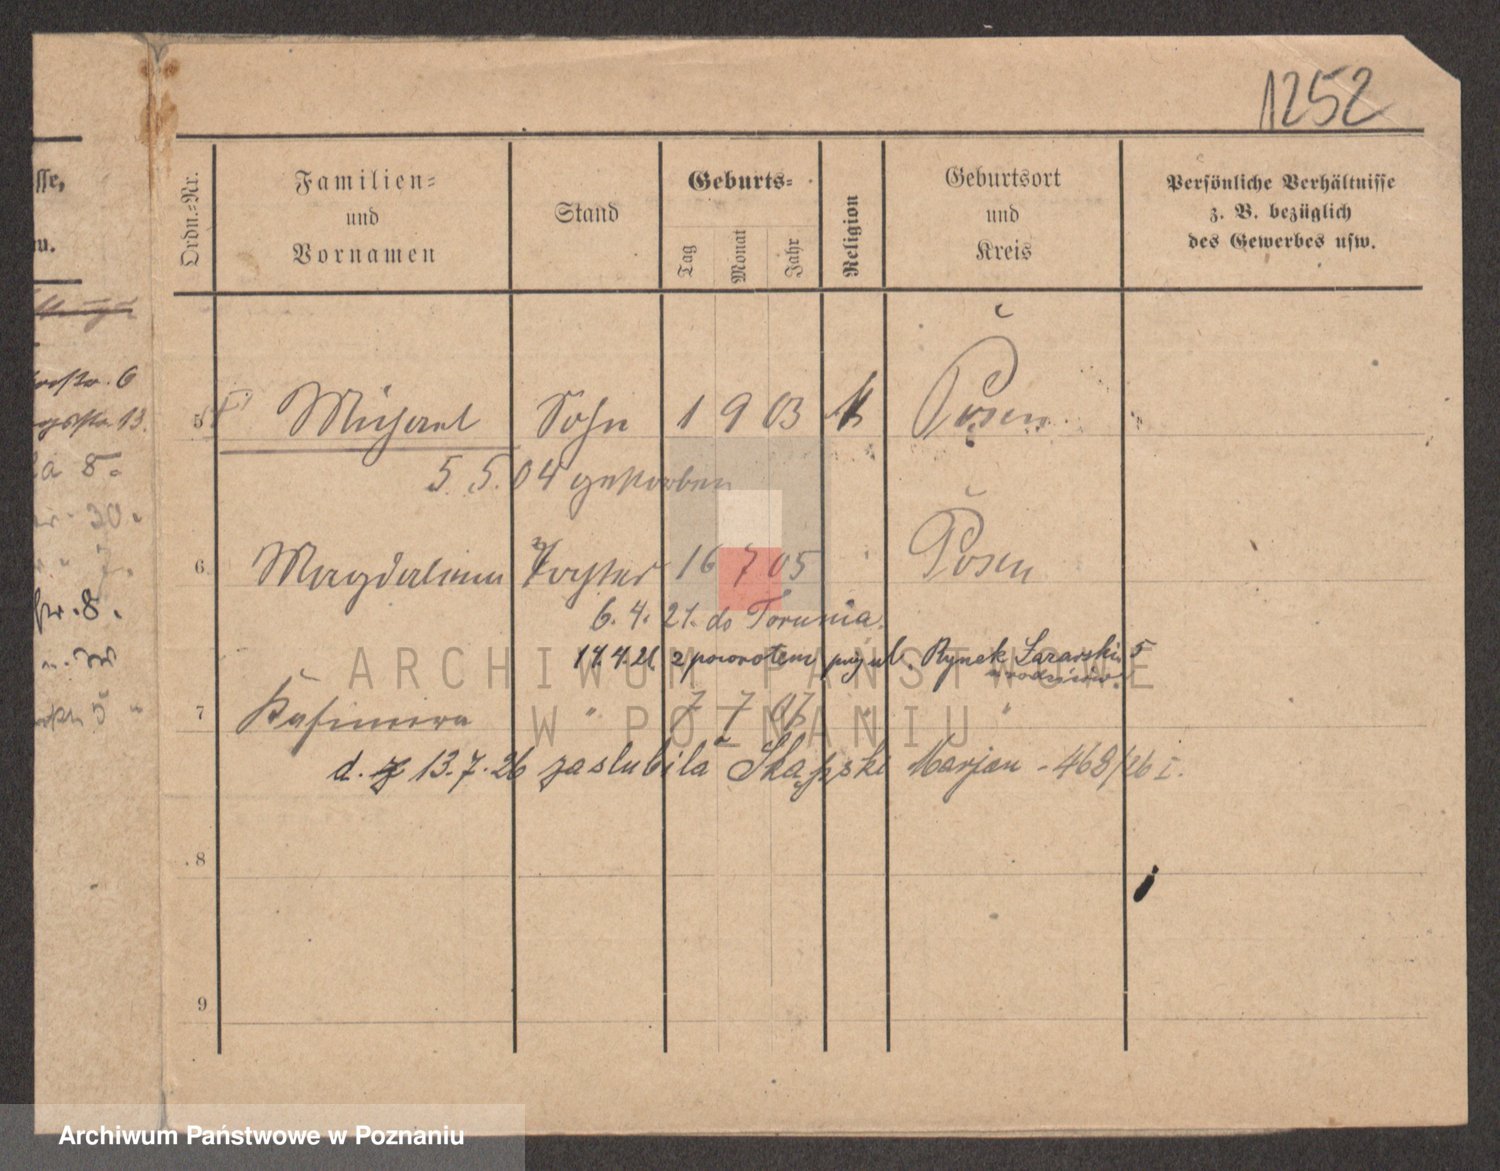 1252
Ordn.-Nr.
Familien-
und
Vornamen
Stand
Geburts-
Tag
Monat
Jahr
Religion
Geburtsort
und
Kreis
Persönliche Verhältnisse
z. B. bezüglich
des Gewerbes usw.
sse,
6
13.
8.
30.
8.
5
5 Michael Sohn 1 9 03 k Posen
5. 5. 04 gestorben
6 Magdalena Tochter 16 7 05 Posen
6. 4. 21. do Torunia.
14. 4. 21. z powrotem przy ul. Rynek Łazarski 5
u rodziców.
7 Kasimira " 7 7 07 " "
d. 13.7.26 zaślubiła Skąpski Marjan - 468/26 I.
8
9
ARCHIWUM PAŃSTWOWE
W POZNANIU
Archiwum Państwowe w Poznaniu